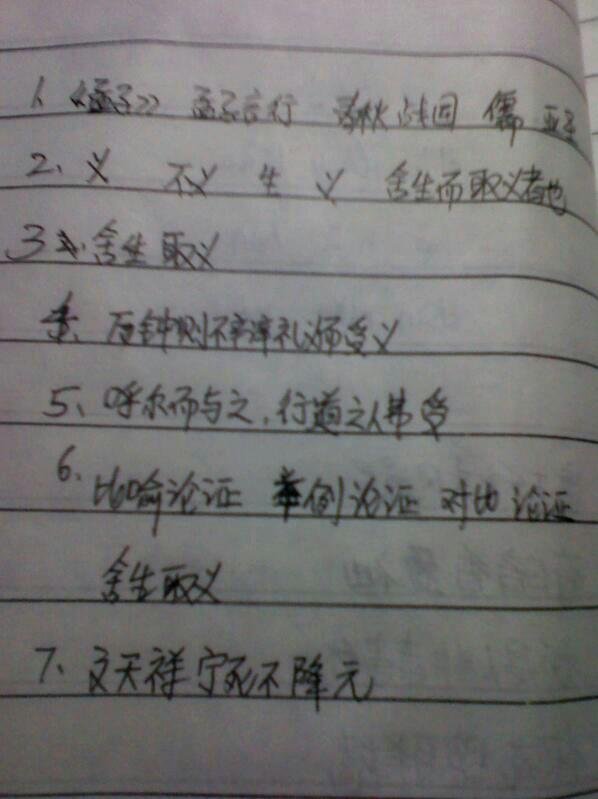 1、《孟子》 孟子言行 春秋战国 儒 亚圣
2、义 不义 生 义 舍生而取义者也
3、舍生取义
万钟则不辩礼义而受
5、呼尔而与之,行道之人弗受
6、比喻论证 举例论证 对比论证
舍生取义
7、文天祥宁死不降元